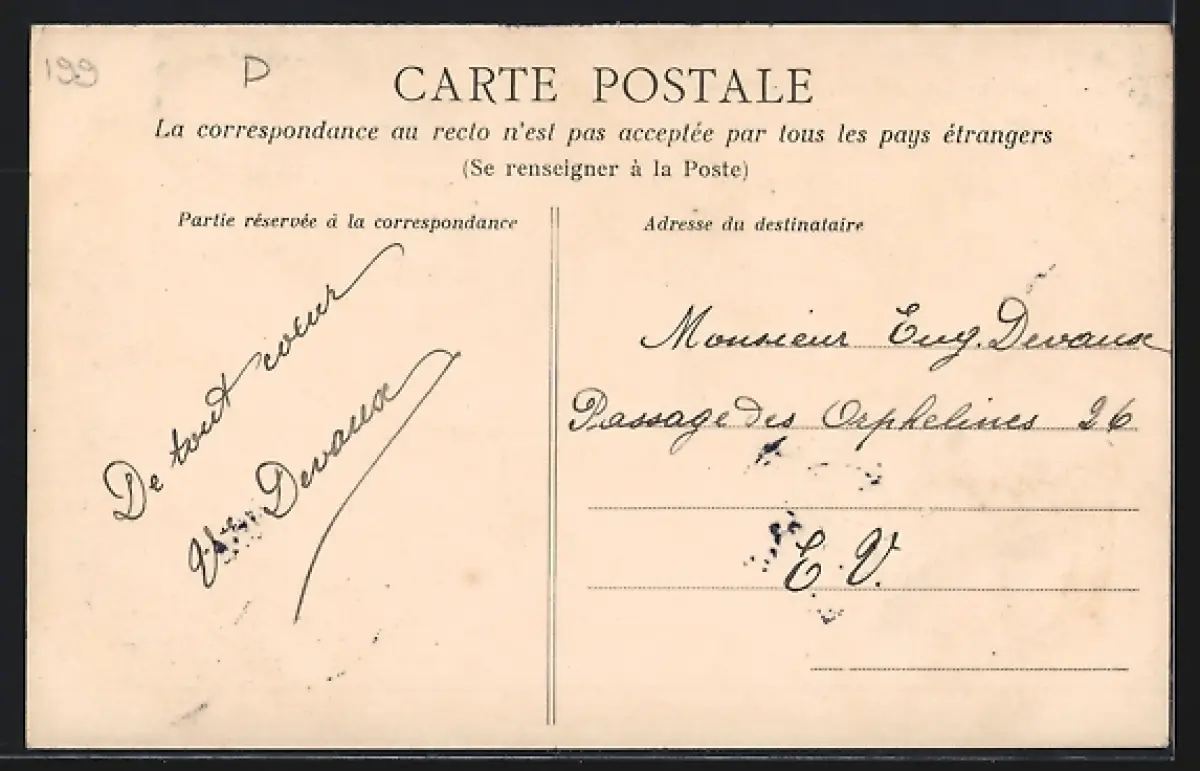 199
D
CARTE POSTALE
La correspondance au recto n'est pas acceptée par tous les pays étrangers
(Se renseigner à la Poste)
Partie réservée à la correspondance
De tout coeur
Devaux
Adresse du destinataire
Monsieur Eug. Devaux
Passage des Orphelines 26
E. V.